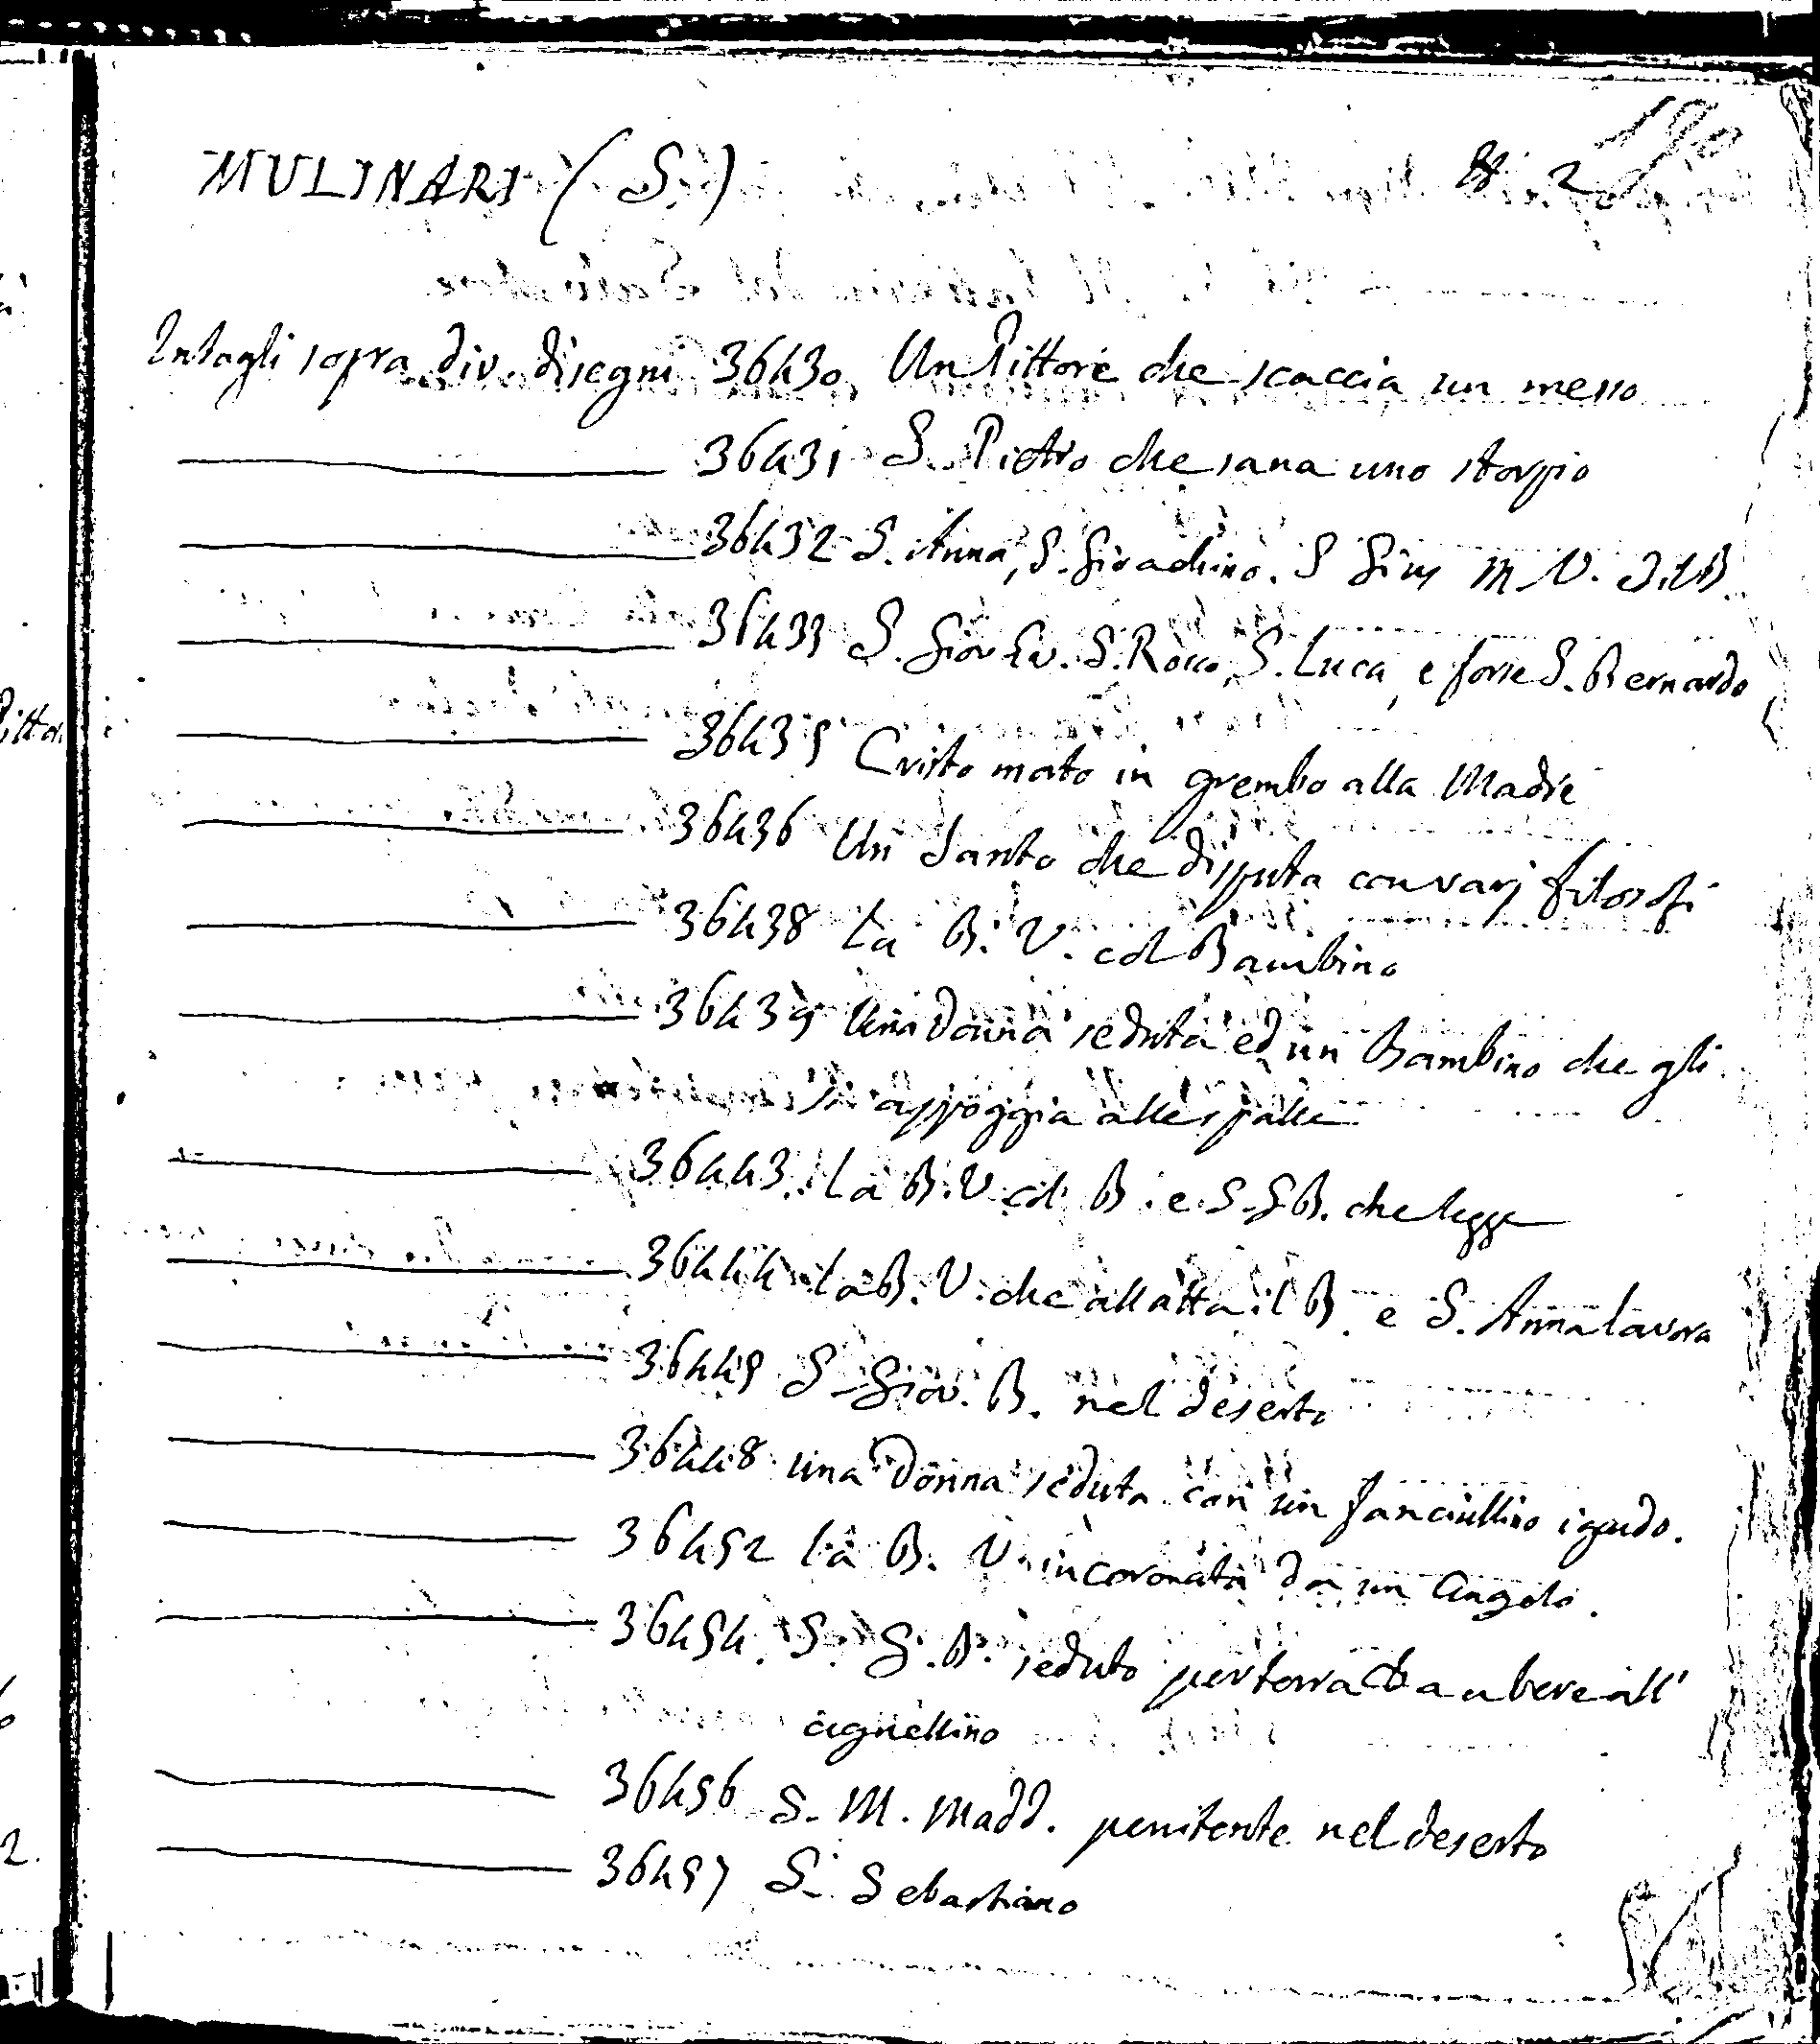 MULINARI (S.) N. 2 190
Intagli sopra div. disegni 36430 Un Pittore che scaccia un messo
36431 S. Pietro che sana uno storpio
36432 S. Anna, S. Gioachino. S Giu M V. J. il B.
36433 S. Giov Ev. S. Rocco, S. Luca, e forse S. Bernardo
36435 Cristo morto in grembo alla Madre
36436 Un Santo che disputa con varj filosofi
36438 La B. V. col Bambino
36439 Una donna seduta ed un Bambino che gli
si appoggia alle spalle
36443. La B. V. col B. e S. G B. che legge
36444 La B. V. che allatta il B. e S. Anna lavora
36445 S. Giov. B. nel deserto
36448 una donna seduta con un fanciullino ignudo.
36452 La B. V. incoronata da un Angelo.
36454. S. G. B. seduto per terra da a bere all'
agnellino
36456 S. M. Madd. penitente nel deserto
36457 S. Sebastiano